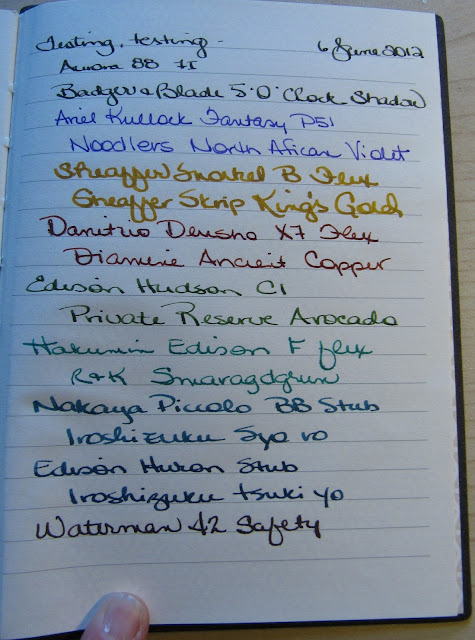 Testing, testing - 6 June 2012
Aurora 88 FI
Badger & Blade 5 'O' Clock Shadow
Ariel Kullock Fantasy P51
Noodlers North African Violet
Sheaffer Snorkel B Flex
Sheaffer Skrip King's Gold
Danitrio Densho X7 Flex
Diamine Ancient Copper
Edison Hudson CI
Private Reserve Avocado
Hakumin Edison F flex
R&K Smaragdgrun
Nakaya Piccolo BB Stub
Iroshizuku Syo ro
Edison Huron Stub
Iroshizuku tsuki yo
Waterman 42 Safety